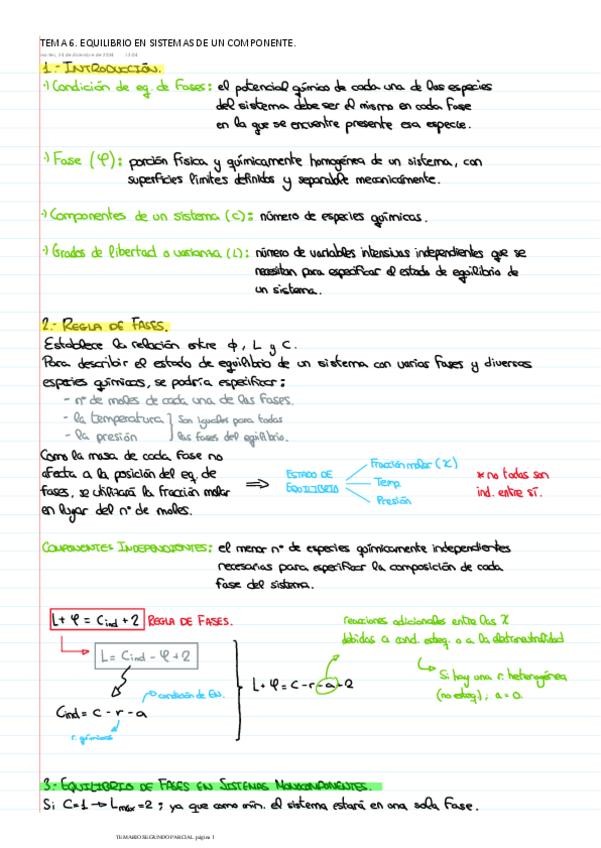 TEMA 6. EQUILIBRIO EN SISTEMAS DE UN COMPONENTE.
1.- INTRODUCCIÓN.
·) Condición de eq. de Fases: el potencial químico de cada una de las especies
del sistema debe ser el mismo en cada fase
en la que se encuentre presente esa especie.
·) Fase (φ): porción física y químicamente homogénea de un sistema, con
superficies límites definidos y separable mecánicamente.
·) Componentes de un sistema (C): número de especies químicas.
·) Grados de libertad o varianza (L): número de variables intensivas independientes que se
necesitan para especificar el estado de equilibrio de
un sistema.
2.- REGLA DE FASES.
Establece la relación entre φ, L y C.
Para describir el estado de equilibrio de un sistema con varias fases y diversas
especies químicas, se podría especificar:
- nº de moles de cada una de las fases.
- la temperatura } Son iguales para todas
- la presión } las fases del equilibrio.
Como la masa de cada fase no
afecta a la posición del eq. de
fases, se utilizará la fracción molar
en lugar del nº de moles.
⇒ ESTADO DE EQUILIBRIO
Fracción molar (X)
Temp
Presión
* no todas son
ind. entre sí.
COMPONENTES INDEPENDIENTES: el menor nº de especies químicamente independientes
necesarias para especificar la composición de cada
fase del sistema.
L + φ = Cind + 2 REGLA DE FASES.
L = Cind - φ + 2
Cind = C - r - a
condición de EN.
r. químicas
L + φ = C - r - a - 2
reacciones adicionales entre las X
debidas a cond. esteq. o a la electroneutralidad
Si hay una r. heterogénea
(no esteq.), a = 0.
3.- EQUILIBRIO DE FASES EN SISTEMAS MONOCOMPONENTES.
Si C=1 → Lmáx=2; ya que como mín. el sistema estará en una sola fase.
TEMARIO SEGUNDO PARCIAL página 1